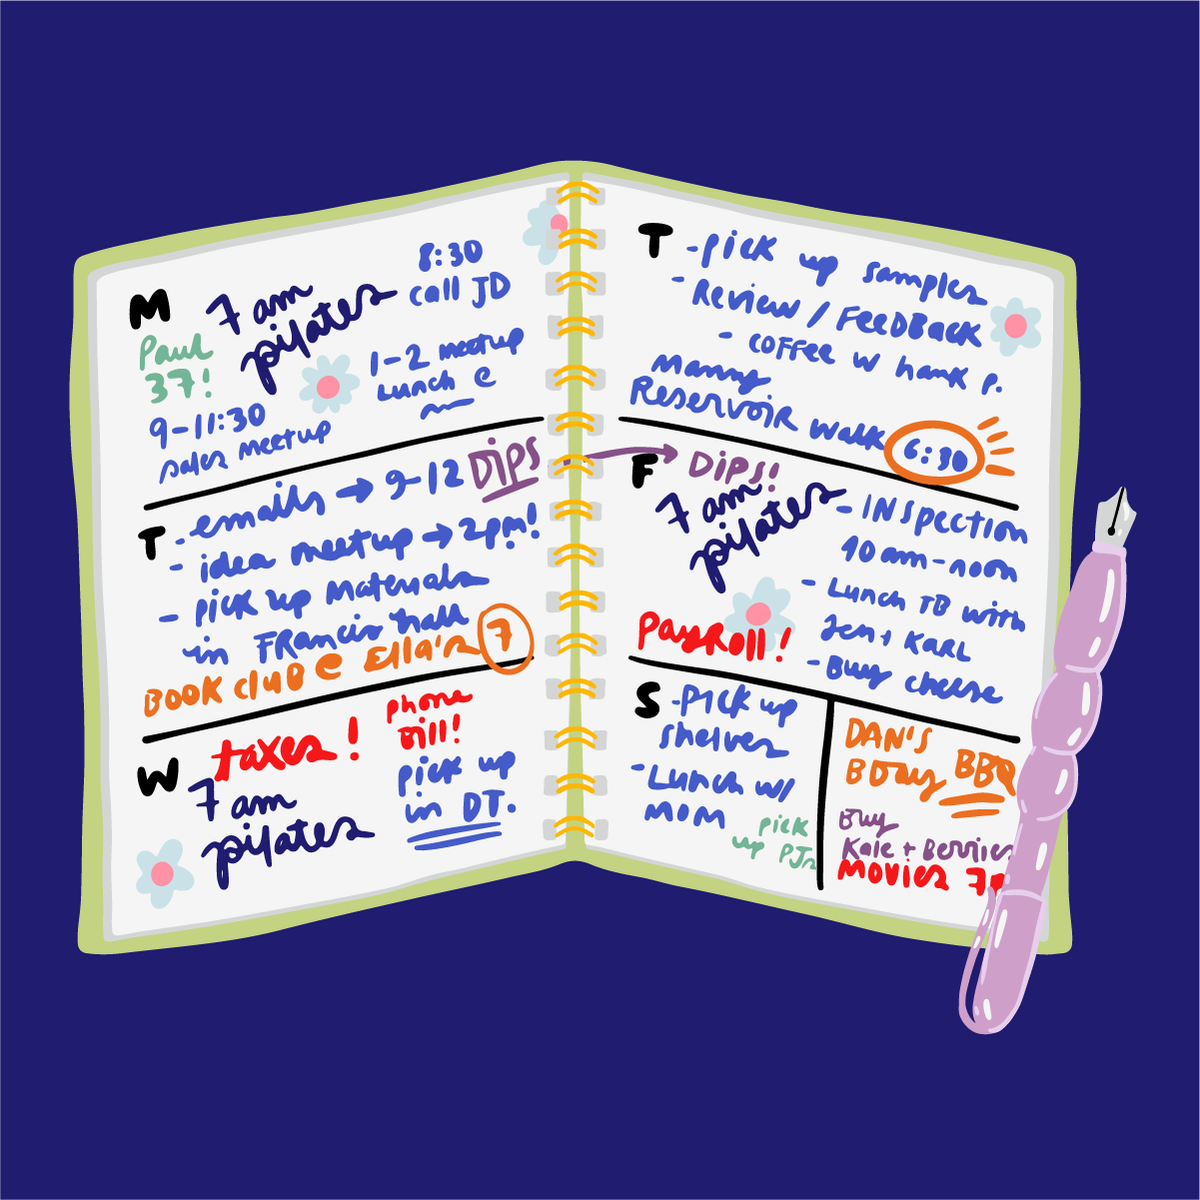 M
7 am
pilates
8:30
call JD
Paul
37!
1-2 meetup
Lunch @
9-11:30
sales meetup
T
- emails → 9-12
DIPS
- idea meetup → 2pm!
- pick up materials
in Francis hall
BOOK CLUB @ Ella's 7
W
taxes!
phone
bill!
7 am
pilates
pick up
in DT.
T
- pick up samples
- Review / FeeDBack
- coffee w hank P.
Manny
Reservoir walk 6:30
F
DIPS!
7 am
pilates
- INspection
10 am-noon
- Lunch TB with
Jen + KARL
- Buy cheese
PayRoll!
S
- PICK up
shelves
- Lunch w/
MOM
pick
up PJs
DAN'S
BDay BBQ
Buy
Kale + Berries
Movies 7